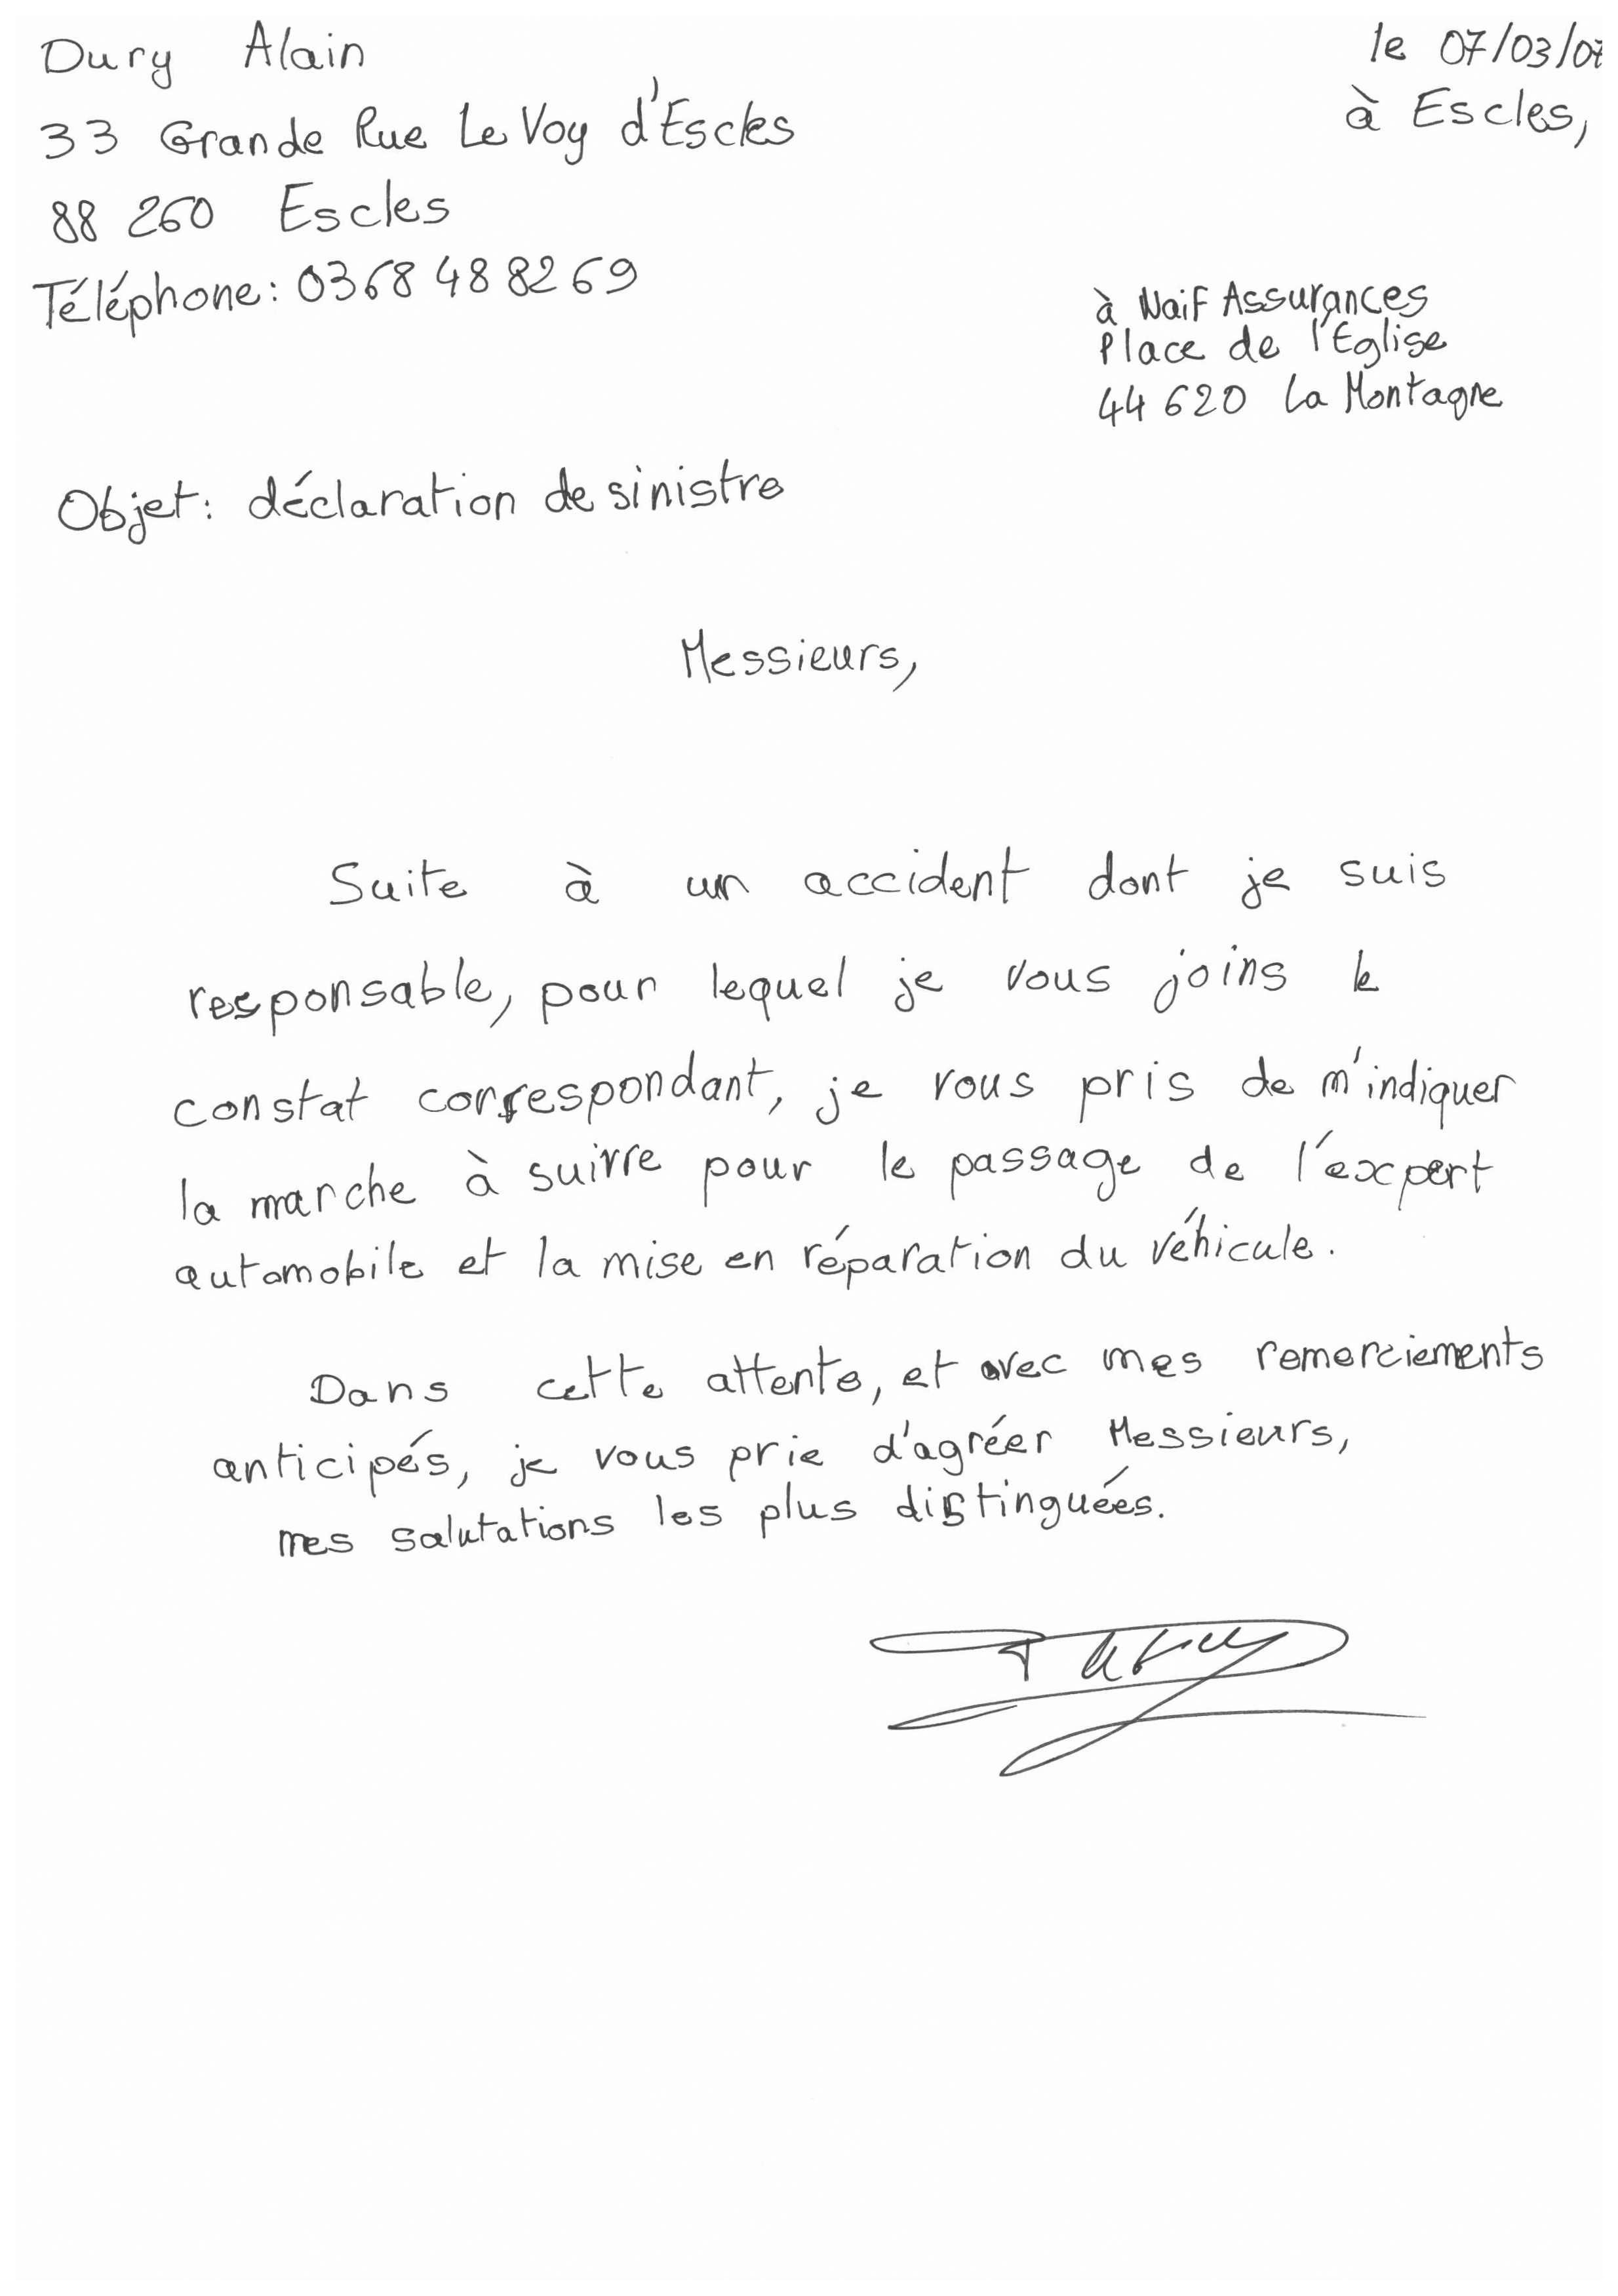 Dury Alain
le 07/03/07
33 Grande Rue Le Voy d'Escles
à Escles,
88 260 Escles
Téléphone: 03 68 48 82 69
à Waif Assurances
Place de l'Eglise
44 620 La Montagne
Objet: déclaration de sinistre
Messieurs,
Suite à un accident dont je suis
responsable, pour lequel je vous joins le
constat correspondant, je vous pris de m'indiquer
la marche à suivre pour le passage de l'expert
automobile et la mise en réparation du véhicule.
Dans cette attente, et avec mes remerciements
anticipés, je vous prie d'agréer Messieurs,
mes salutations les plus distinguées.
Dury